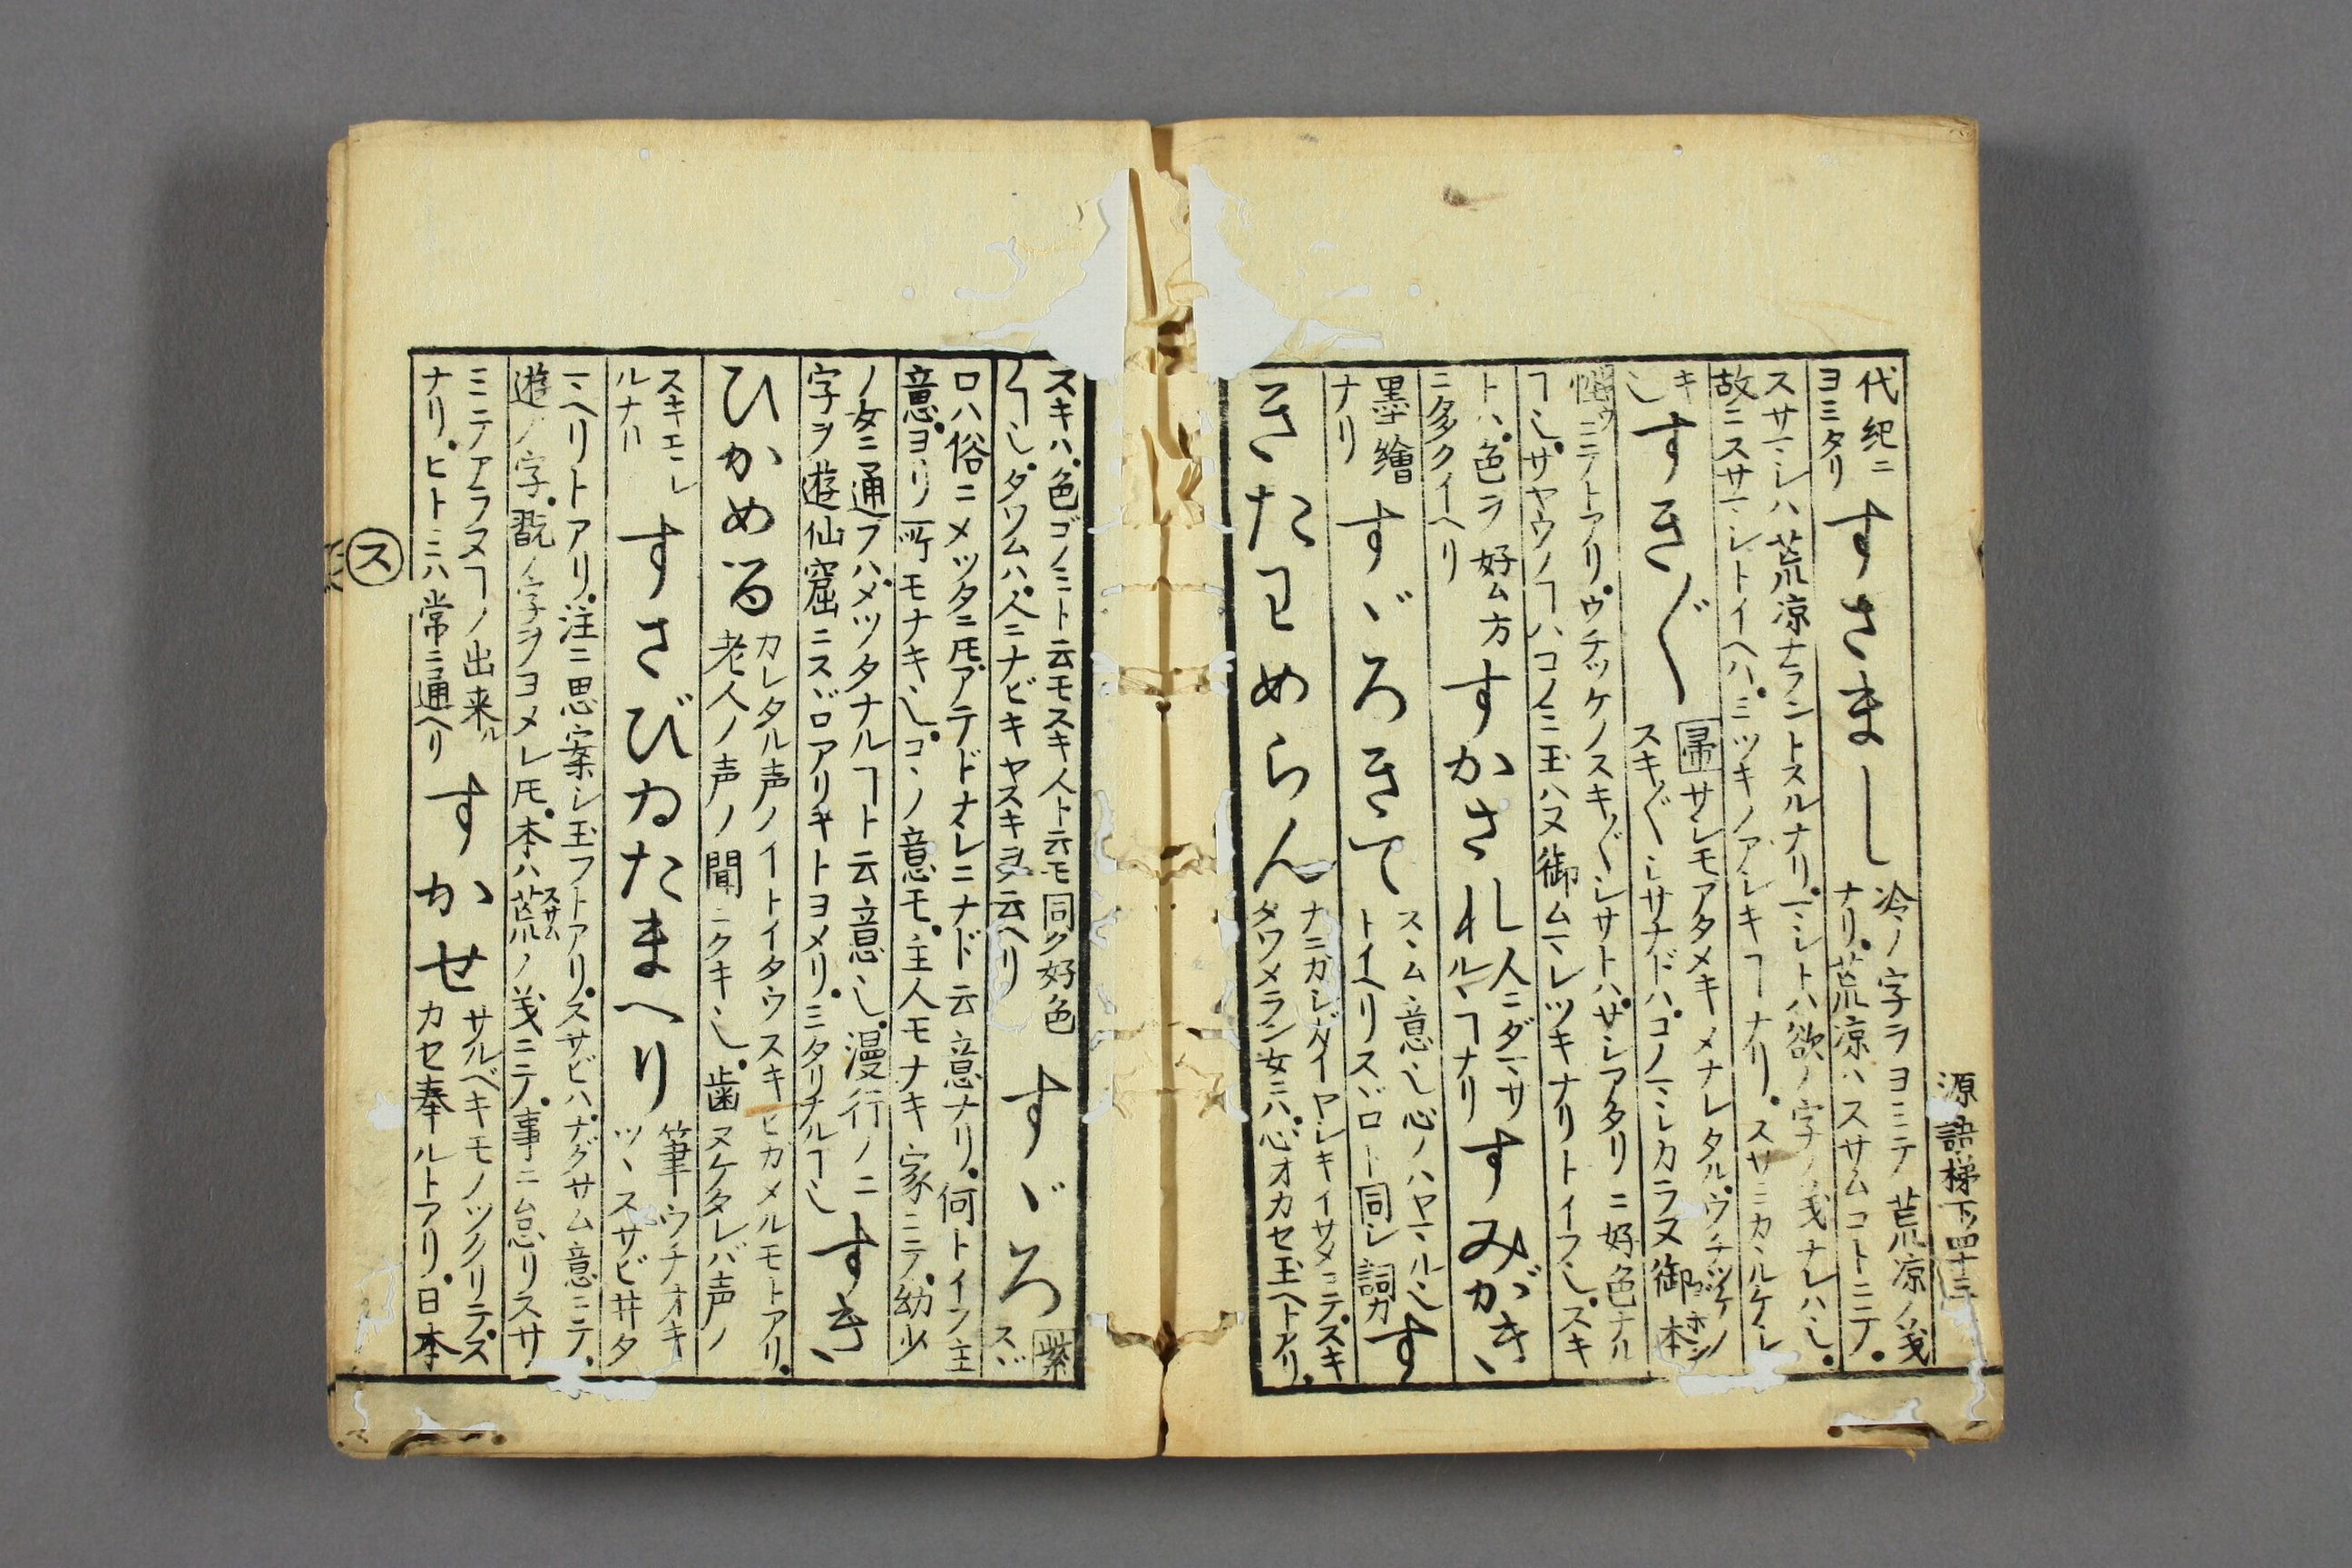 源語梯下ノ四十三
代紀ニ
ヨミタリ
すさまし
冷ノ字ヲヨミテ荒凉ノ義
ナリ。荒凉ハスサムコトニテ。
スサマシハ荒凉ナラントスルナリ。マシトハ欲ノ字ノ義ナレハ也。
故ニスサマシトイヘハ。ミツキノアシキヿナリ。スサミカヽルケシ
キ
也
すき〴〵
帚サシモアタメキメナレタル。ウチツケノ
スキ〴〵シサナドハ。コノマシカラヌ御本
ニテトアリ。ウチツケノスキ〴〵シサトハ。サシアタリニ好色ナル
ヿ也。サヤウノヿハコノミ玉ハヌ御ムマレツキナリトイフ也。スキ
トハ。色ヲ好ム方
ニ多クイヘリ
すかされ
人ニダマサ
ルヽヿナリ
すみがき
墨繪
ナリ
すゞろきて
スヽム意也心ノハヤマル也
トイヘリスヾロト同シ詞カ
すきたわめらん
ナニガシガイヤシキイサメニテ。スキ
タワメラン女ニハ。心オカセ玉ヘトアリ。
スキハ。色ゴノミト云モスキ人ト云モ同ク好色
ヿ也。タワムハ。人ニナビキヤスキヲ云ヘリ
すゞろ
紫
スヾ
ロハ俗ニメツタニ𪜈アテドナシニナド云意ナリ。何トイン主
意ヨリ所モナキ也。コヽノ意モ。主人モナキ家ニテ。幼少
ノ女ニ通フハ。メツタナルヿト云意也。漫行ノ二
字ヲ遊仙窟ニスヾロアリキトヨメリ。ミタリナルヿ也
すきひかめる
カレタル声ノイトイタウスキヒガメルモトアリ。
老人ノ声ノ聞ニクキ也。歯ヌケタレバ声ノ
スキエシレ
ルナリ
すさびゐたまへり
筆ウチオキ
ツヽスサビ井タ
マヘリトアリ。注ニ思案シ玉フトアリ。スサビハ。ナグサム意ニテ。
遊ノ字。翫ノ字ヲヨメレ𪜈。本ハ荒スサムノ義ニテ。事ニ怠リスサ
ミテアラヌヿノ出来ル
ナリ。ヒトミハ常ニ通ヘリ
すかせ
サルベキモノツクリテス
カセ奉ルトアリ。日本
ス